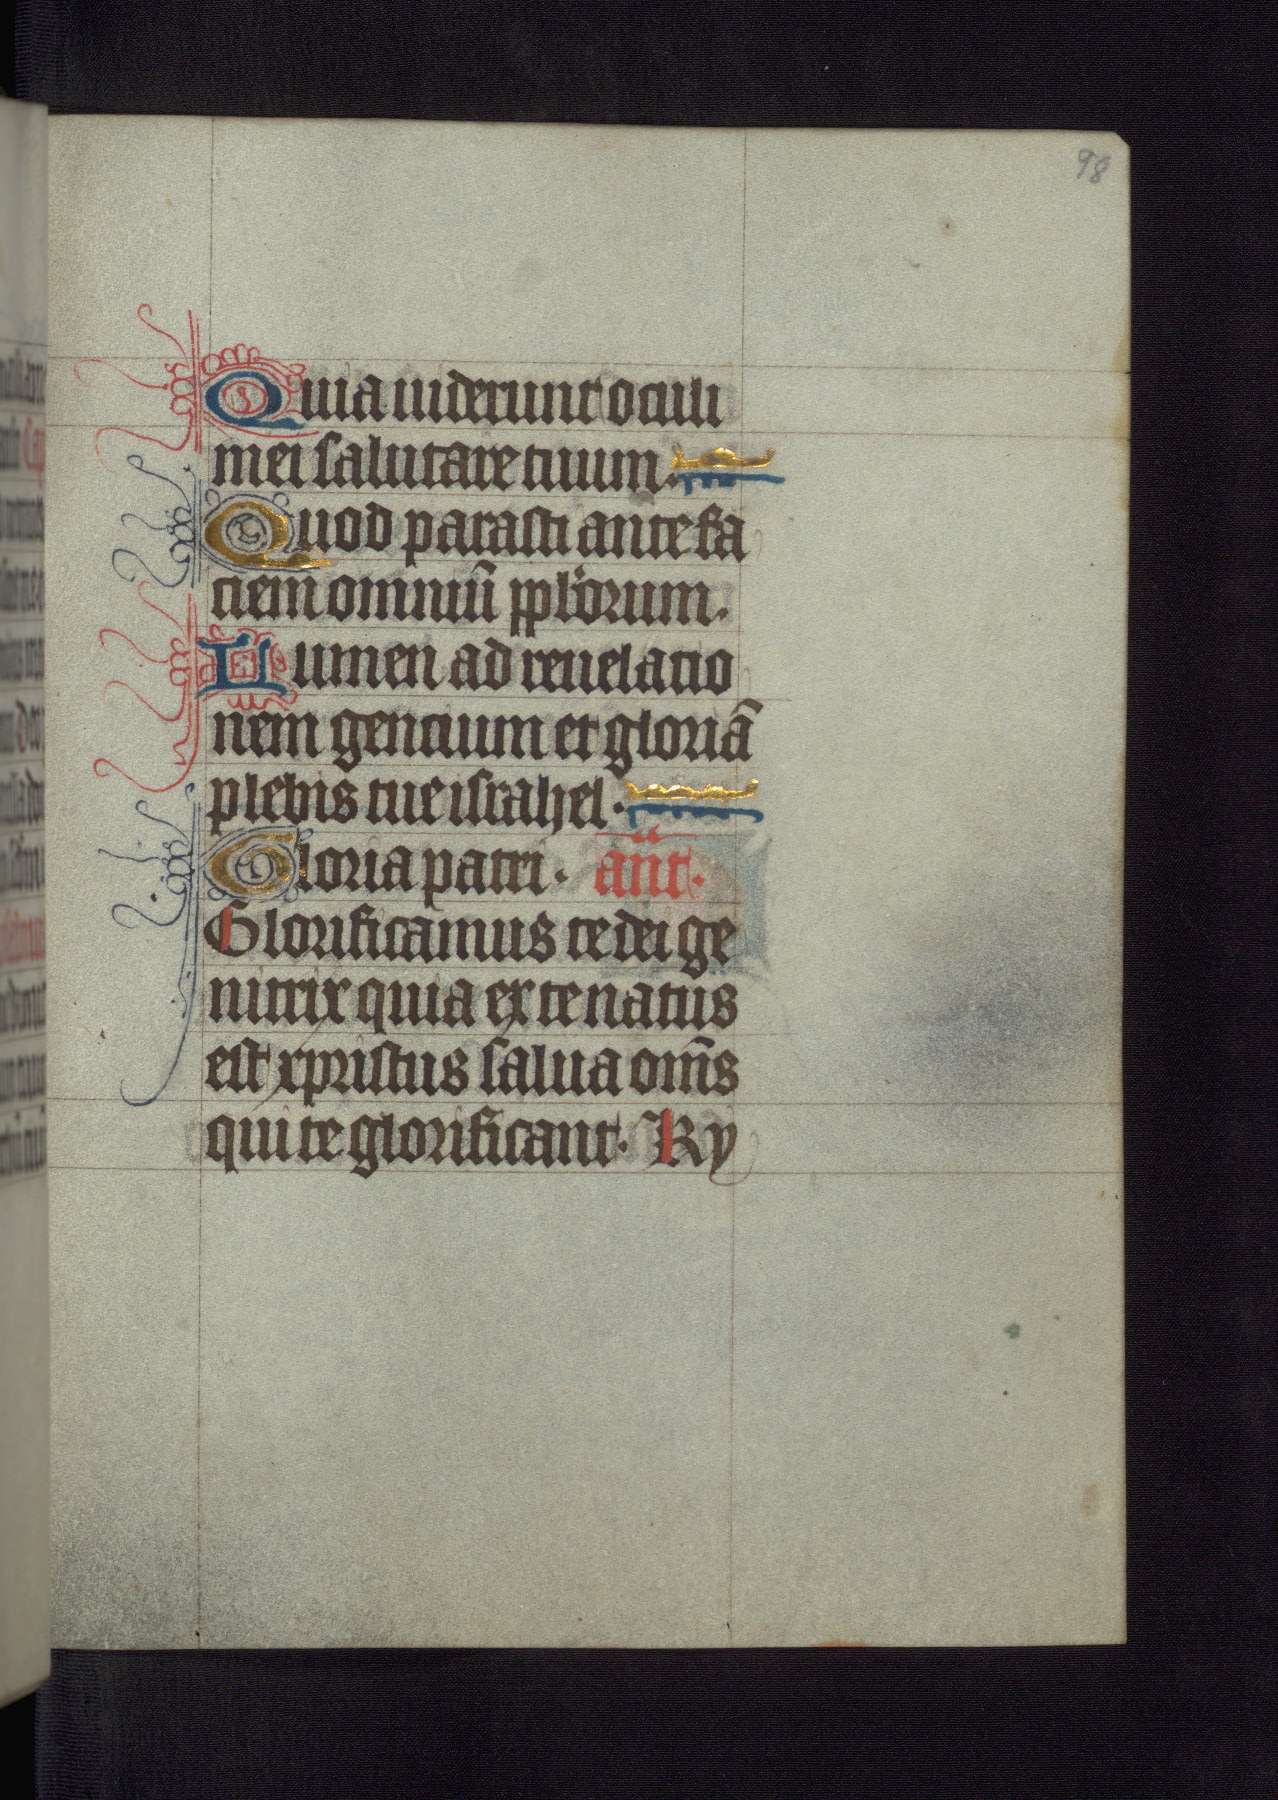 98
Quia uiderunt oculi
mei salutare tuum.
Quod parasti ante fa
ciem omniū pplorum.
Lumen ad reuelatio
nem gencium et gloriā
plebis tue israhel.
Gloria patri. añt.
Glorificamus te dei ge
nitrix quia ex te natus
est xpristus salua om̄s
qui te glorificant. Ky